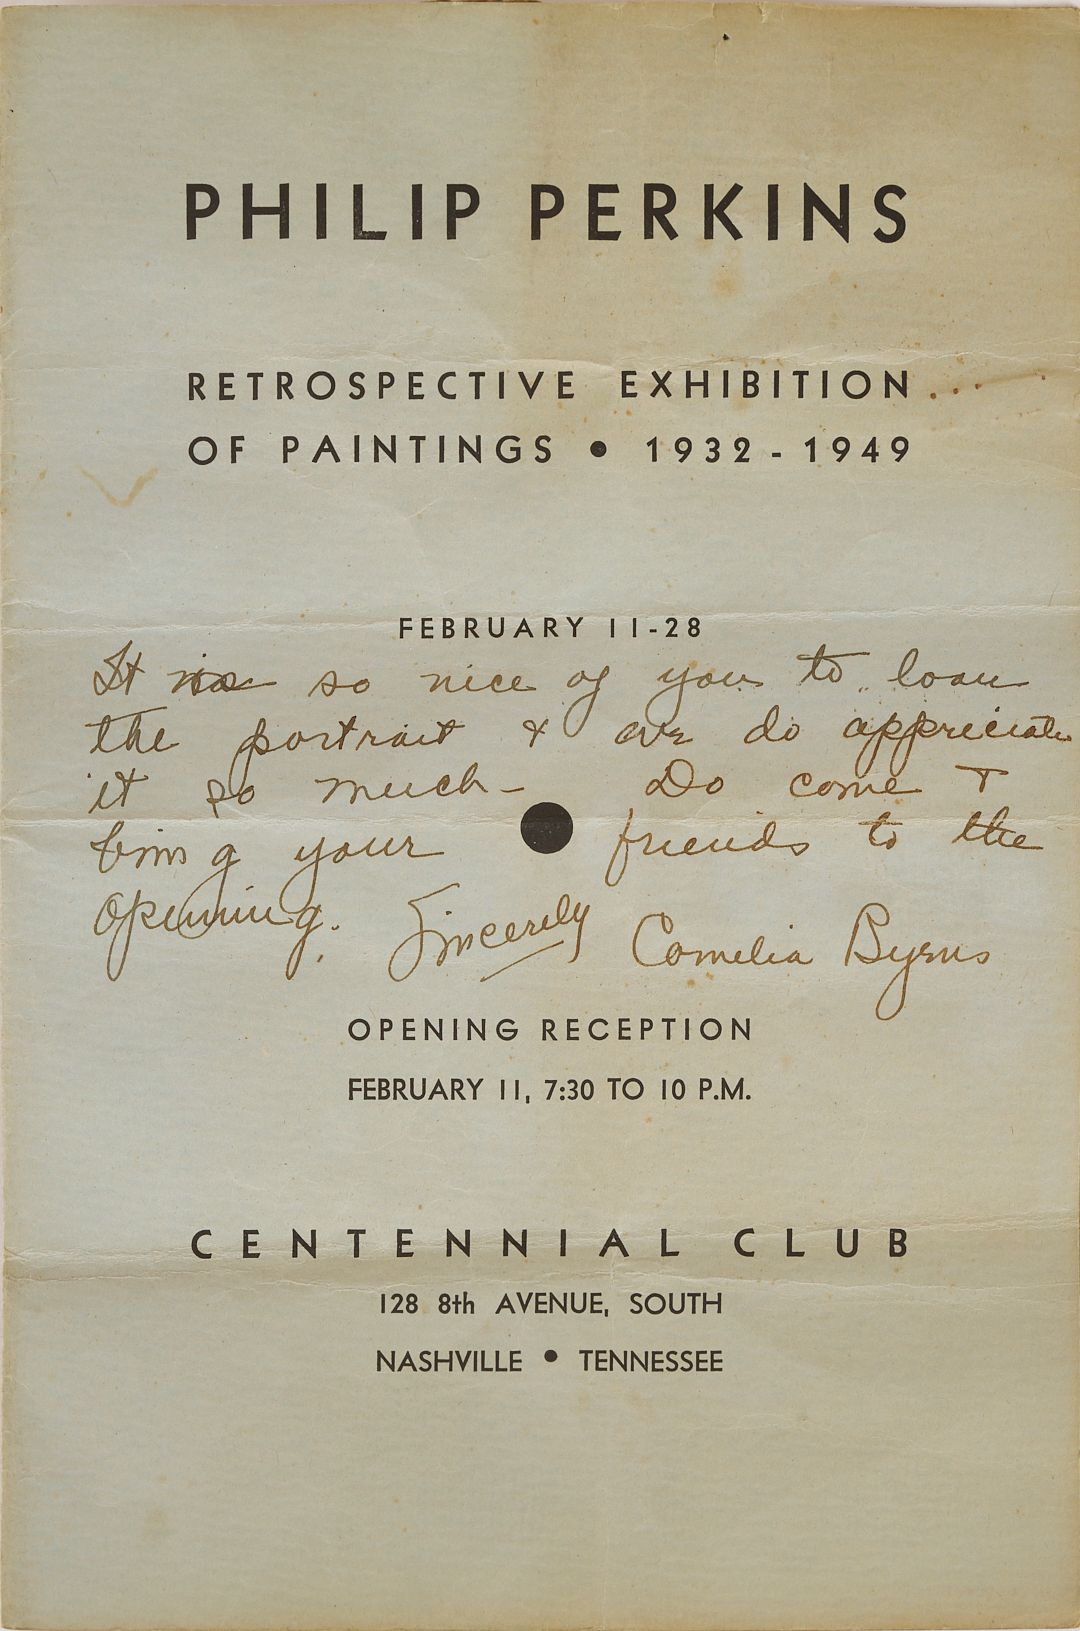 PHILIP PERKINS
RETROSPECTIVE EXHIBITION...
OF PAINTINGS • 1932 - 1949
FEBRUARY 11-28
It is so nice of you to loan
the portrait & we do appreciate
it so much - Do come &
bring your friends to the
opening. Sincerely Cornelia Byrns
OPENING RECEPTION
FEBRUARY 11, 7:30 TO 10 P.M.
CENTENNIAL CLUB
128 8th AVENUE, SOUTH
NASHVILLE • TENNESSEE